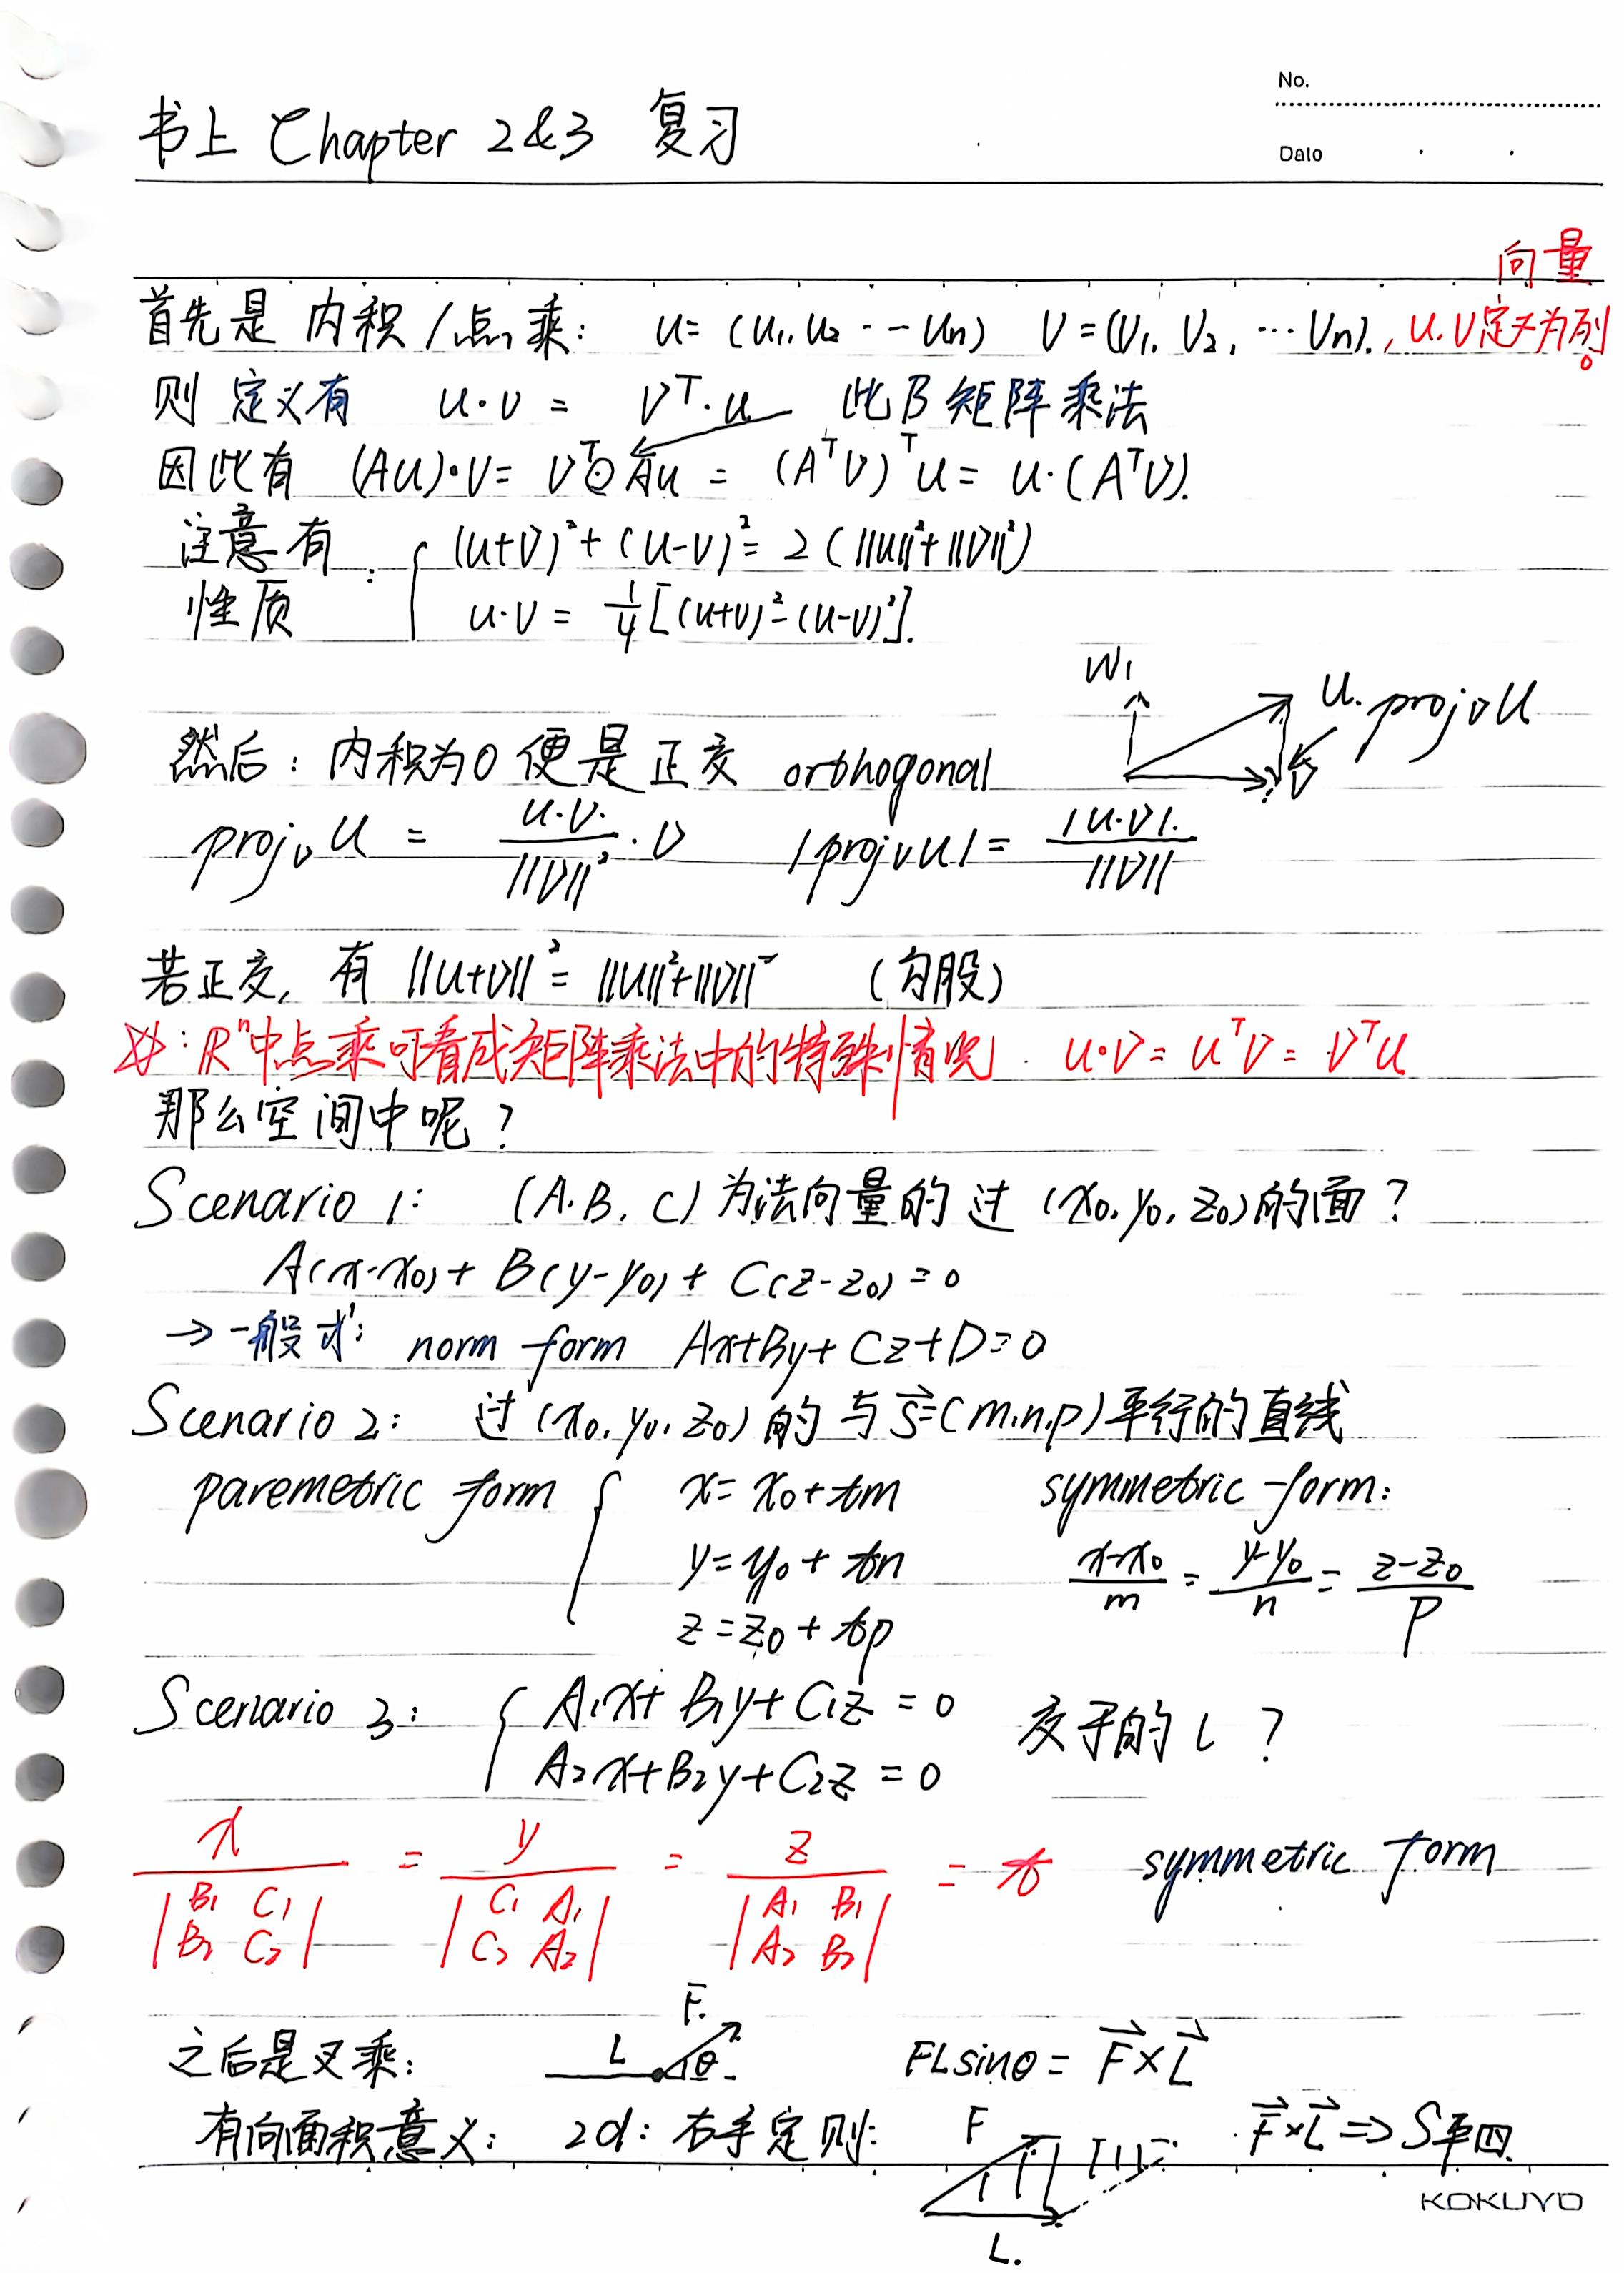 No.
书上 Chapter 2&3 复习
Date
向量
首先是 内积/点乘: u=(u₁,u₂--un) v=(v₁, v₂, ···vn)., u.v定义为列。
则 定义有 u·v = vᵀ·u 此为矩阵乘法
因此有 (Au)·v= vᵀ⊙Au = (Aᵀv)ᵀu= u·(Aᵀv).
注意有性质: { (u+v)²+(u-v)²= 2(||u||²+||v||²)
u·v = 1/4[(u+v)²-(u-v)²].
W₁
u. projᵥu
v
然后: 内积为0 便是正交 orthogonal
projᵥu = u·v./||v||² · v |projᵥu| = |u·v|./||v||
若正交, 有 ||u+v||²= ||u||²+||v||² (勾股)
※: Rⁿ中点乘可看成矩阵乘法中的特殊情况. u·v= uᵀv= vᵀu
那么空间中呢?
Scenario 1: (A.B.C)为法向量的 过 (x₀,y₀,z₀)的面?
A(x-x₀)+B(y-y₀)+C(z-z₀)=0
→一般式: norm form Ax+By+Cz+D=0
Scenario 2: 过(x₀,y₀,z₀)的 与 s⃗=(m.n.p)平行的直线
paremetric form { x= x₀+tm symmetric form:
y= y₀+tn (x-x₀)/m = (y-y₀)/n = (z-z₀)/p
z=z₀+tp
Scenario 3: { A₁x+B₁y+C₁z=0 交于的 L ?
A₂x+B₂y+C₂z=0
x/|B₁ C₁; B₂ C₂| = y/|C₁ A₁; C₂ A₂| = z/|A₁ B₁; A₂ B₂| = t symmetric form
之后是叉乘: L F. θ FLsinθ= F⃗×L⃗
有向面积意义: 2d: 右手定则: F L. F⃗×L⃗ => S平四.
KOKUYO